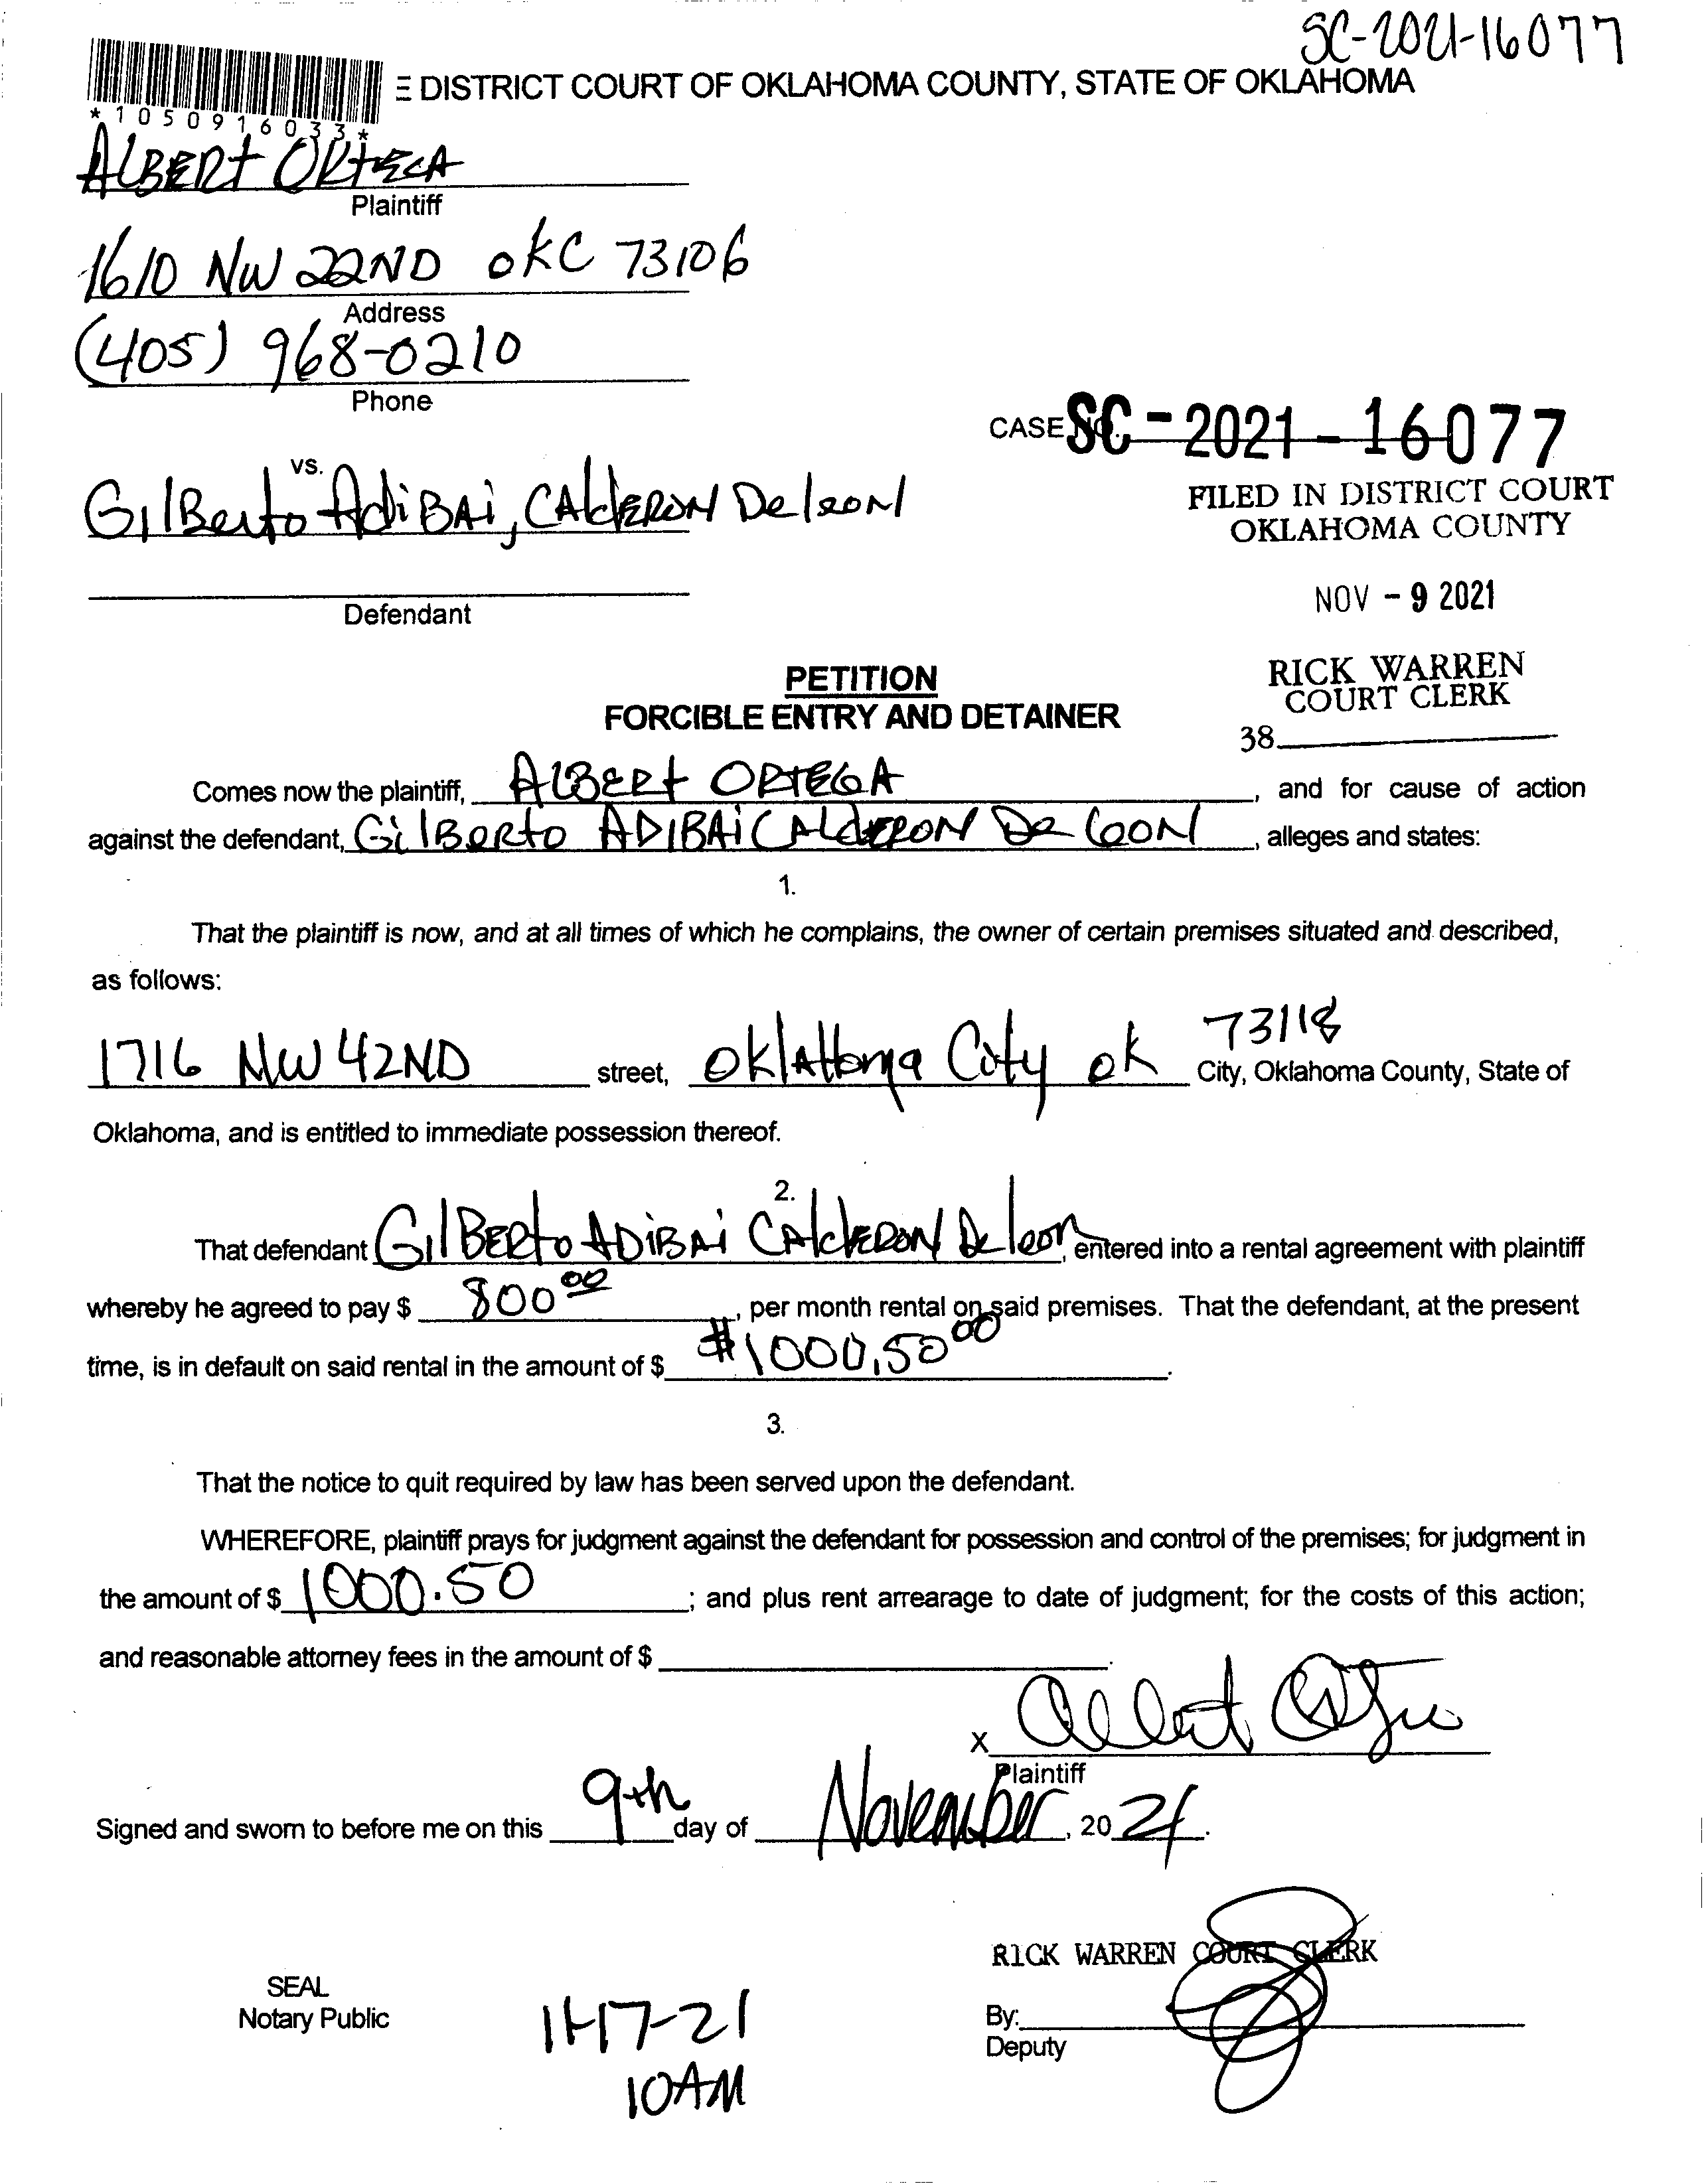 SC-2021-16077
E DISTRICT COURT OF OKLAHOMA COUNTY, STATE OF OKLAHOMA
*1050916033*
ALBERT ORTEGA
Plaintiff
1610 NW 22ND OKC 73106
Address
(405) 968-0210
Phone
CASE NO. SC-2021-16077
vs.
GilBerto AdiBAi, CAldERON DeleoN
FILED IN DISTRICT COURT
OKLAHOMA COUNTY
NOV - 9 2021
Defendant
RICK WARREN
COURT CLERK
38
PETITION
FORCIBLE ENTRY AND DETAINER
Comes now the plaintiff, ALBERT ORTEGA, and for cause of action
against the defendant, GilBERto ADIBAi CALdERON De leoN, alleges and states:
1.
That the plaintiff is now, and at all times of which he complains, the owner of certain premises situated and described,
as follows:
1716 NW 42ND street, OklaHoma City ok 73118 City, Oklahoma County, State of
Oklahoma, and is entitled to immediate possession thereof.
2.
That defendant GilBERto ADiBAi CAldERON De leon, entered into a rental agreement with plaintiff
whereby he agreed to pay $ 800 00, per month rental on said premises. That the defendant, at the present
time, is in default on said rental in the amount of $ #1000,50 00.
3.
That the notice to quit required by law has been served upon the defendant.
WHEREFORE, plaintiff prays for judgment against the defendant for possession and control of the premises; for judgment in
the amount of $ 1000.50; and plus rent arrearage to date of judgment; for the costs of this action;
and reasonable attorney fees in the amount of $
X Albert Ortega
Plaintiff
Signed and sworn to before me on this 9th day of November, 20 21.
RICK WARREN COURT CLERK
SEAL
Notary Public
11-17-21
10AM
By:
Deputy